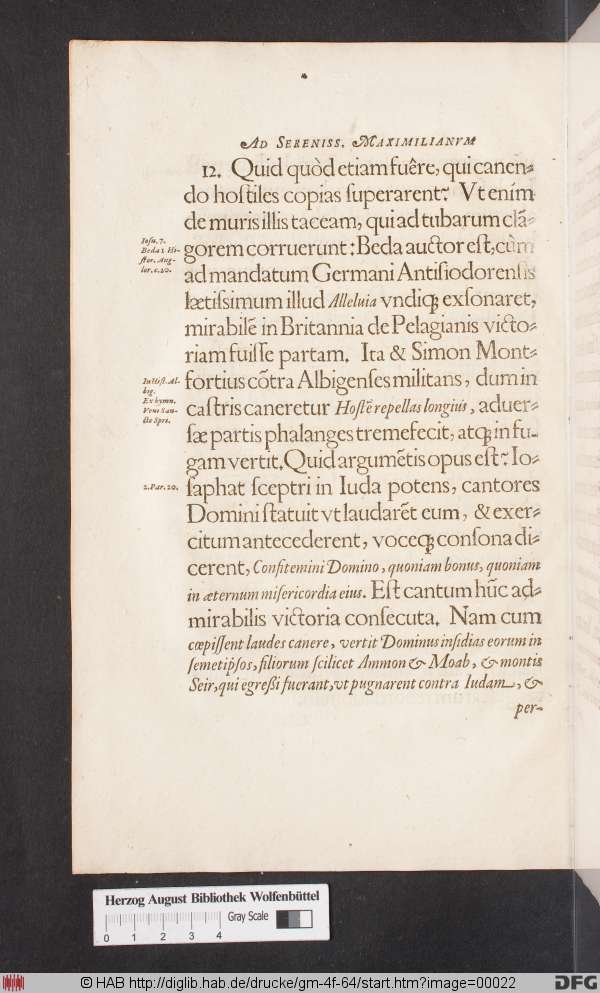 AD SERENISS. MAXIMILIANVM
12. Quid quòd etiam fuêre, qui canen-
do hoſtiles copias ſuperarent? Vt ením
de muris illis taceam, qui ad tubarum clã-
Ioſu. 7.
Beda 1 Hi-
ſtor. Ang-
lor. c. 20.
gorem corruerunt: Beda auctor eſt, cùm
ad mandatum Germani Antiſiodorenſis
lætiſsimum illud Alleluia vndiq; exſonaret,
mirabilẽ in Britannia de Pelagianis victo-
riam fuiſſe partam. Ita & Simon Mont-
In Hiſt. Al-
big.
Ex hymn.
Veni San-
cte Spri.
fortius cõtra Albigenſes militans, dum in
caſtris caneretur Hoſtẽ repellas longiùs, aduer-
ſæ partis phalanges tremefecit, atq; in fu-
gam vertit. Quid argumẽtis opus eſt? Io-
2. Par. 20.
ſaphat ſceptri in Iuda potens, cantores
Domini ſtatuit vt laudarẽt eum, & exer-
citum antecederent, voceq; conſona di-
cerent, Confitemini Domino, quoniam bonus, quoniam
in æternum miſericordia eius. Eſt cantum hũc ad-
mirabilis victoria conſecuta. Nam cum
cœpiſſent laudes canere, vertit Dominus inſidias eorum in
ſemetipſos, filiorum ſcilicet Ammon & Moab, & montis
Seir, qui egreßi fuerant, vt pugnarent contra Iudam, &
per-
Herzog August Bibliothek Wolfenbüttel
Gray Scale
0 1 2 3 4
© HAB http://diglib.hab.de/drucke/gm-4f-64/start.htm?image=00022
DFG